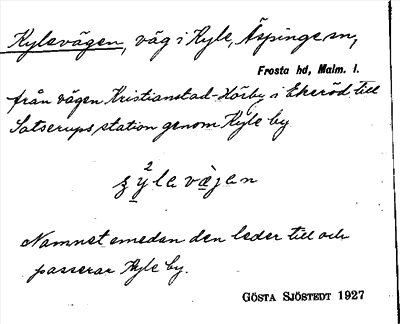 Kylevägen, väg i Kyle, Äspinge sn,
Frosta hd, Malm. l.
från vägen Kristianstad-Hörby i Ekeröd till
Satserups station genom Kyle by
2
ꭓylavägen
Namnet emedan den leder till och
passerar Kyle by.
GÖSTA SJÖSTEDT 1927